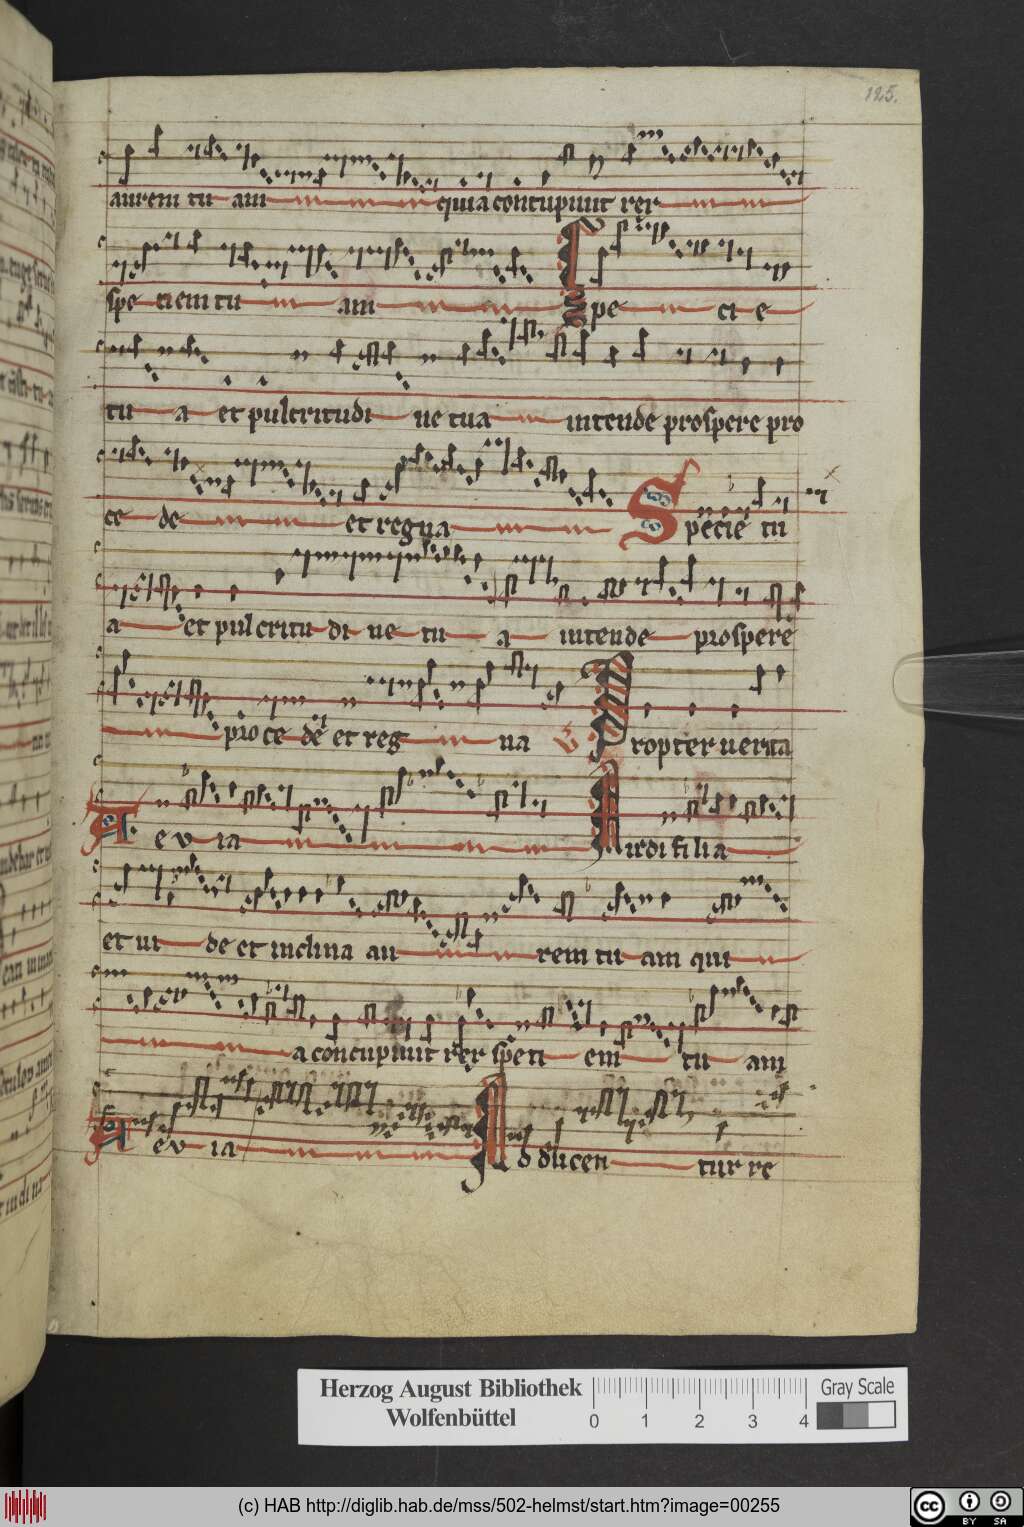 125.
aurem tu am quia concupiuit rex
spe ciem tu am Spe ci e
tu a et pulcritudi ne tua intende prospere pro
ce de et regna Specie tu
a et pulcritu di ne tu a intende prospere
pro ce de et reg na V Propter uerita
A e v ia Audi filia
et ui de et inclina au rem tu am qui
a concupiuit rex speci em tu am
A e v ia Adducen tur re
Herzog August Bibliothek
Wolfenbüttel
0 1 2 3 4
Gray Scale
(c) HAB http://diglib.hab.de/mss/502-helmst/start.htm?image=00255
cc BY SA